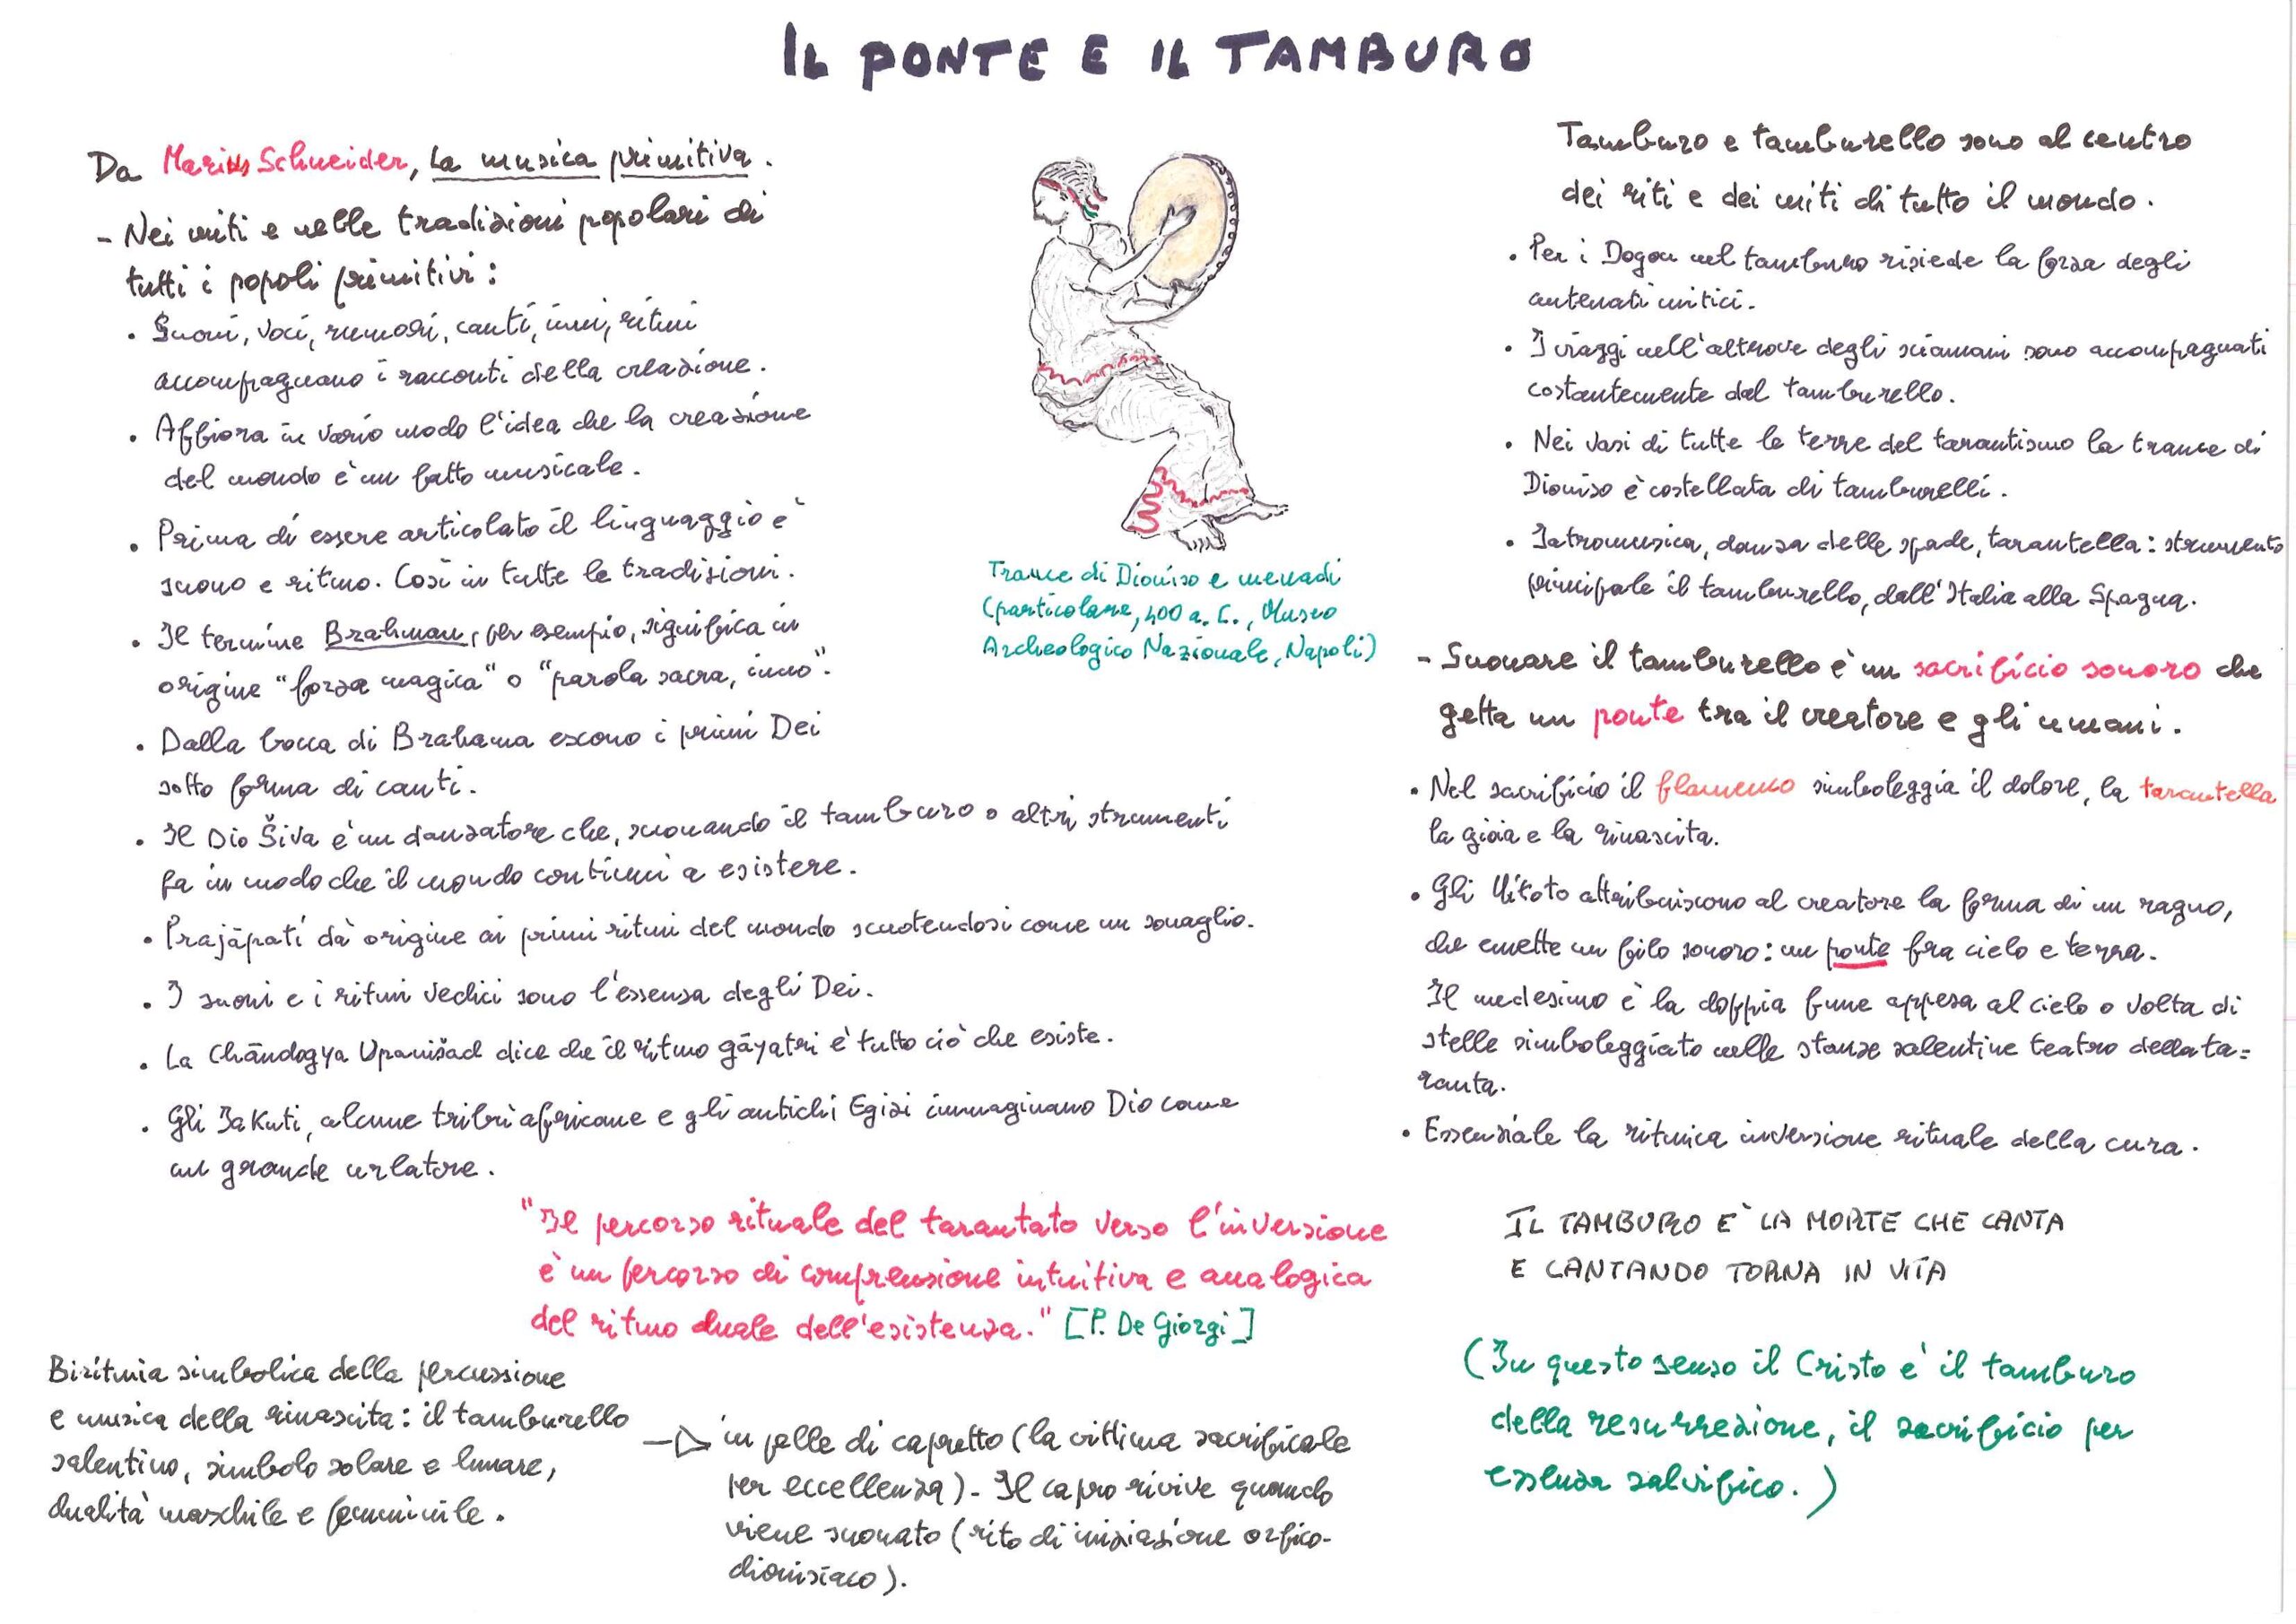 IL PONTE E IL TAMBURO
Da Marius Schneider, La musica primitiva.
- Nei miti e nelle tradizioni popolari di
tutti i popoli primitivi:
• Suoni, voci, rumori, canti, inni, ritmi
accompagnano i racconti della creazione.
• Affiora in vario modo l'idea che la creazione
del mondo è un fatto musicale.
• Prima di essere articolato il linguaggio è
suono e ritmo. Così in tutte le tradizioni.
• Il termine Brahman, per esempio, significa in
origine "forza magica" o "parola sacra, inno".
• Dalla bocca di Brahama escono i primi Dei
sotto forma di canti.
• Il Dio Šiva è un danzatore che, suonando il tamburo o altri strumenti
fa in modo che il mondo continui a esistere.
• Prajāpati dà origine ai primi ritmi del mondo scuotendosi come un sonaglio.
• I suoni e i ritmi vedici sono l'essenza degli Dei.
• La Chāndogya Upanišad dice che il ritmo gāyatri è tutto ciò che esiste.
• Gli Jakuti, alcune tribù africane e gli antichi Egizi immaginano Dio come
un grande urlatore.
Trance di Dioniso e menadi
(particolare, 400 a. C., Museo
Archeologico Nazionale, Napoli)
Tamburo e tamburello sono al centro
dei riti e dei miti di tutto il mondo.
• Per i Dogon nel tamburo risiede la forza degli
antenati mitici.
• I viaggi nell'altrove degli sciamani sono accompagnati
costantemente dal tamburello.
• Nei vasi di tutte le terre del tarantismo la trance di
Dioniso è costellata di tamburelli.
• Iatromusica, danza delle spade, tarantella: strumento
principale il tamburello, dall'Italia alla Spagna.
- Suonare il tamburello è un sacrificio sonoro che
getta un ponte tra il creatore e gli umani.
• Nel sacrificio il flamenco simboleggia il dolore, la tarantella
la gioia e la rinascita.
• Gli Uitoto attribuiscono al creatore la forma di un ragno,
che emette un filo sonoro: un ponte fra cielo e terra.
Il medesimo è la doppia fune appesa al cielo o volta di
stelle simboleggiato nelle stanze salentine teatro della ta=
ranta.
• Essenziale la ritmica inversione rituale della cura.
"Il percorso rituale del tarantato verso l'inversione
è un percorso di comprensione intuitiva e analogica
del ritmo duale dell'esistenza." [P. De Giorgi]
IL TAMBURO E' LA MORTE CHE CANTA
E CANTANDO TORNA IN VITA
(In questo senso il Cristo è il tamburo
della resurrezione, il sacrificio per
essenza salvifico.)
Biritmia simbolica della percussione
e musica della rinascita: il tamburello
salentino, simbolo solare e lunare,
dualità maschile e femminile.
in pelle di capretto (la vittima sacrificale
per eccellenza). Il capro rivive quando
viene suonato (rito di iniziazione orfico-
dionisiaco).